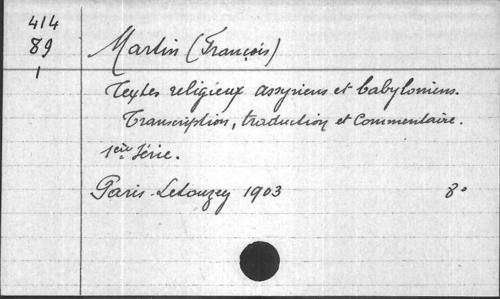 414
89
1
Martin (François)
Textes religieux assyriens et babyloniens.
Transcription, traduction et Commentaire.
1ère Série.
Paris-Letouzey 1903 8°